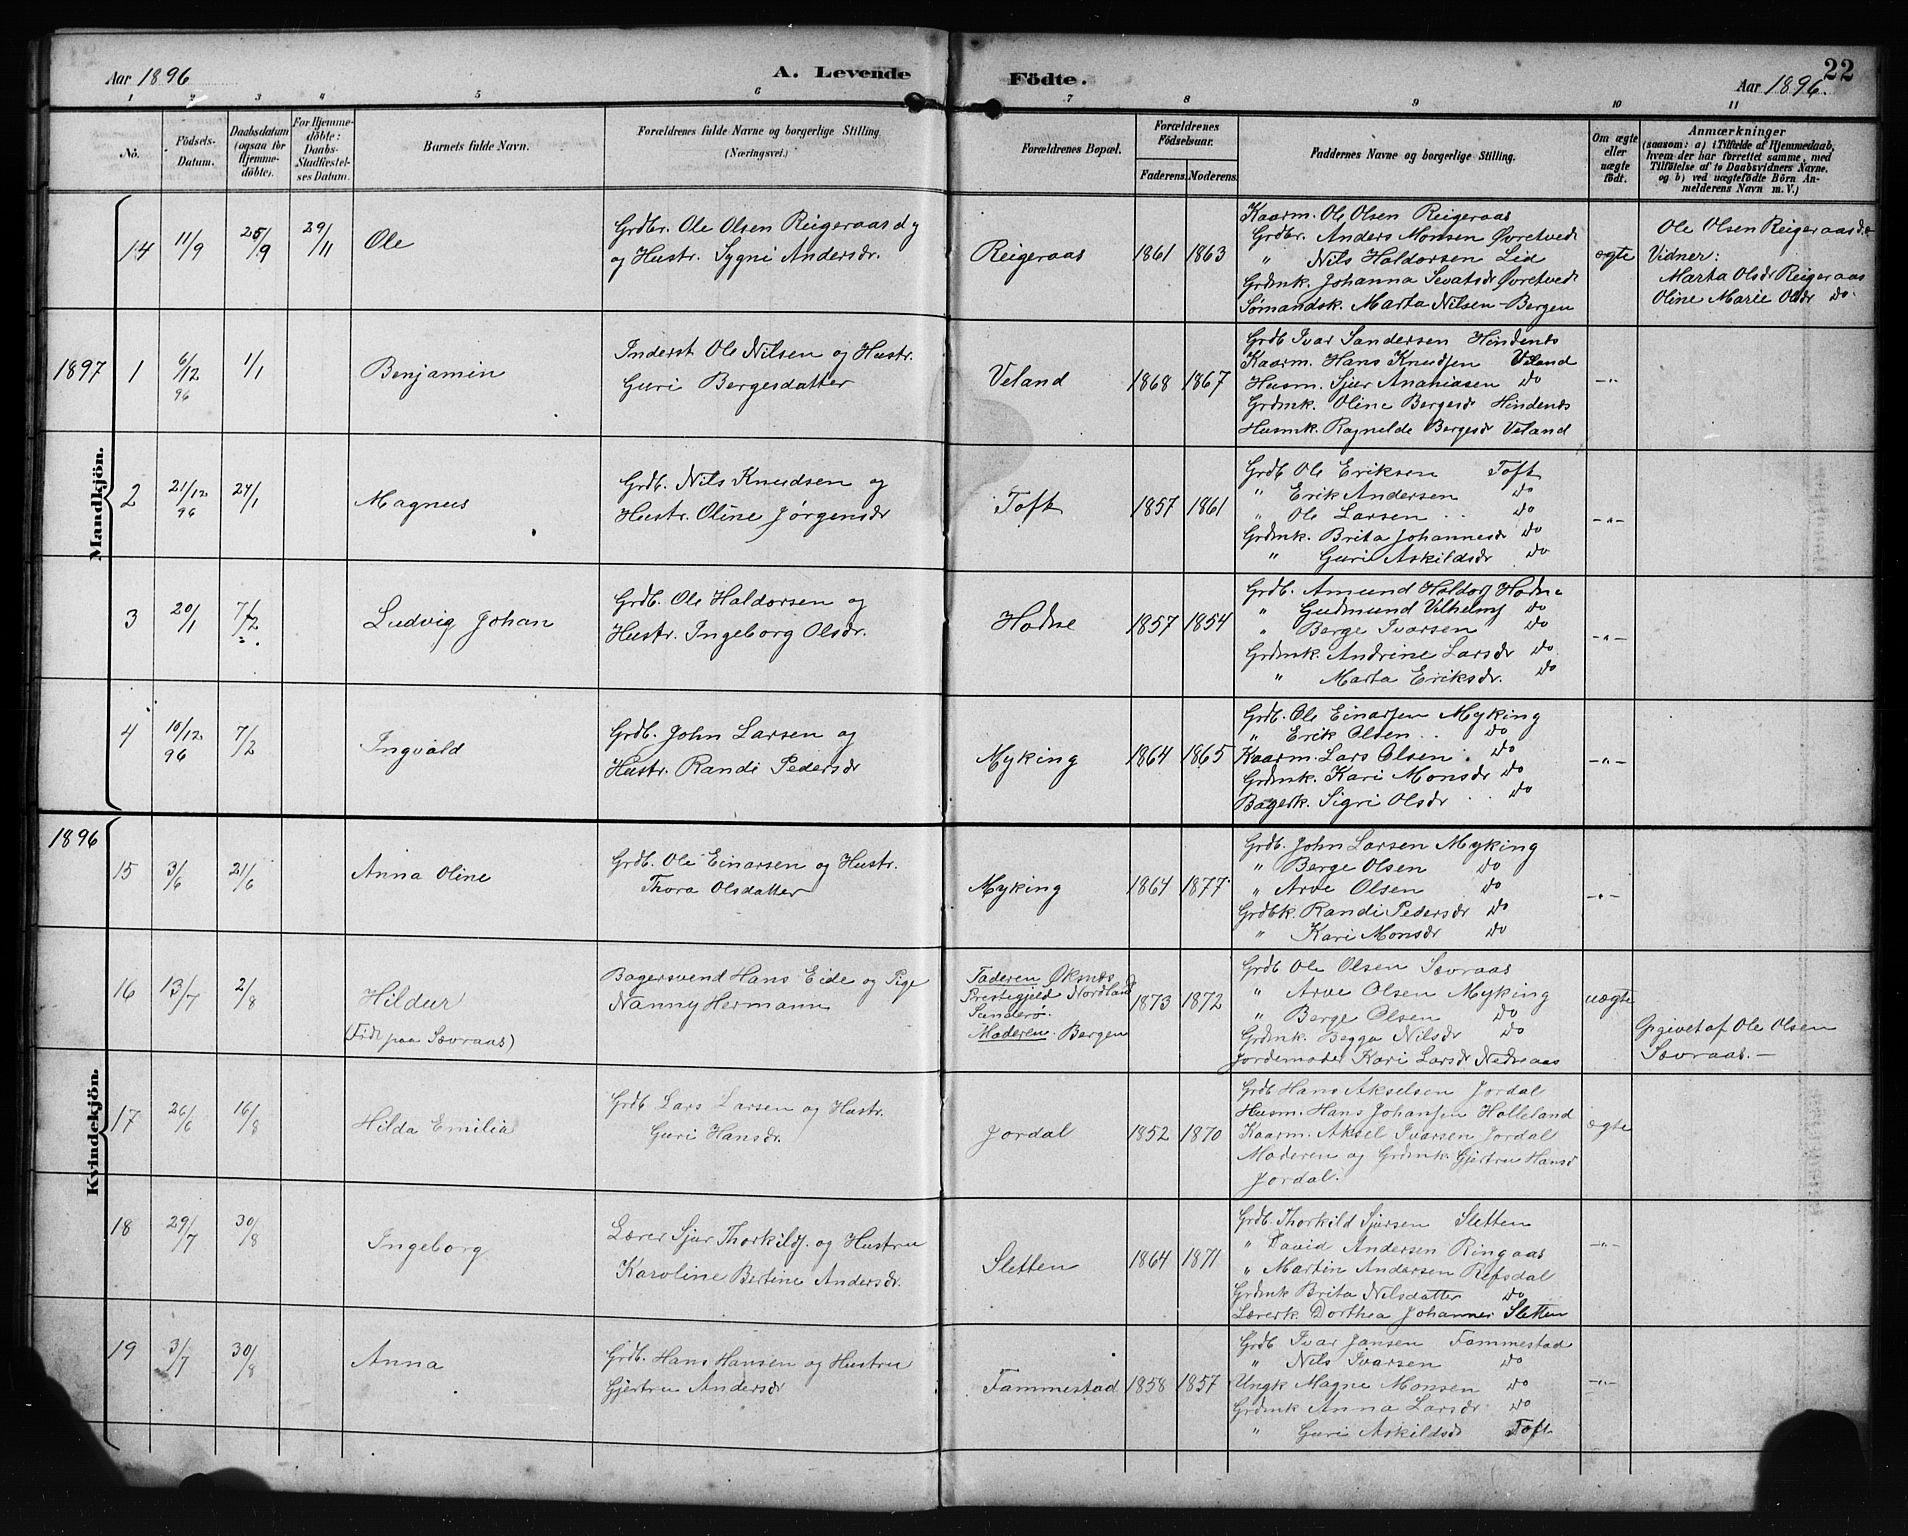 Aar 1896
A. Levende
Födte.
Aar 1896.
22
1 2 3 4 5 6 7 8 9 10 11
No.
Födsels-Datum.
Daabsdatum (ogsaa for Hjemmedöbte).
For Hjemmedöbte: Daabs-Stadfestelses Datum.
Barnets fulde Navn.
Forældrenes fulde Navne og borgerlige Stilling. (Næringsvei.)
Forældrenes Bopæl.
Forældrenes Födselsaar.
Faderens. Moderens.
Faddernes Navne og borgerlige Stilling.
Om ægte eller uægte födt.
Anmærkninger
(saasom: a) i Tilfælde af Hjemmedaab,
hvem der har forrettet samme, med
Tilföielse af to Daabsvidners Navne.
og b) ved uægtefödte Börn An-
melderens Navn m. V.)
Mandkjön.
14 11/9 25/9 29/11 Ole
Grdbr. Ole Olsen Reigeraas d y
og Hustr. Sygni Andersdr.
Reigeraas 1861 1863
Kaarm. Ole Olsen Reigeraas
Grdbr. Anders Monsen Øvretvedt
" Nils Haldorsen Lid
Grdmk. Johanna Sjvatsdr Øvretvedt
Sømandsk. Marta Nilsen - Bergen
ægte
Ole Olsen Reigeraas d.æ
Vidner:
Marta Olsdr Reigeraas
Oline Marie Olsdr do.
1897
1 6/12 96 1/1 Benjamin
Inderst Ole Nilsen og Hustr.
Guri Bergesdatter
Veland 1868 1867
Grdb Ivar Sandersen Hindenes
Kaarm. Hans Knudsen Veland
Husm. Sjur Ananiasen do
Grdmk. Oline Bergesdr Hindenes
Husmk. Ragnilde Bergesdr Veland
-"-
2 21/12 96 24/1 Magnus
Grdb. Nils Knudsen og
Hustr. Oline Jørgensdr
Toft 1857 1861
Grdb Ole Eriksen Toft
" Erik Andersen do
" Ole Larsen do
Grdmk. Brita Johannesdr do
" Guri Askildsdr do
-"-
3 20/1 7/2 Ludvig Johan
Grdb. Ole Haldorsen og
Hustr. Ingeborg Olsdr.
Hodne 1857 1854
Grdb. Amund Haldorss Hodne
" Gudmund Vilhelms do
" Berge Ivarsen do
Grdmk. Andrine Larsdr do
" Marta Eriksdr. do
-"-
4 10/12 96 7/2 Ingvald
Grdb. John Larsen og
Hustr. Randi Pedersdr
Myking 1864 1865
Grdb. Ole Einarsen Myking
" Erik Olsen do
Kaarm. Lars Olsen do
Grdmk. Kari Monsdr do
Bagerk. Sigri Olsdr do
-"-
1896
Kvindekjön.
15 3/6 21/6 Anna Oline
Grdb. Ole Einarsen og Hustr.
Thora Olsdatter
Myking 1864 1877
Grdb. John Larsen Myking
" Berge Olsen do
" Arve Olsen do
Grdbk. Randi Pedersdr do
" Kari Monsdr do
-"-
16 13/7 2/8 Hildur
(Født paa Sævraas)
Bagersvend Hans Eide og Pige
Nanny Hermann
Faderen Øksnes
Prestegjeld Nordland
Moderen: Bergen
1873 1872
Grdb Ole Olsen Sævraas
" Arve Olsen Myking
" Berge Olsen do
Grdmk. Begga Nilsdr do
Jordemoder Kari Larsdr Nedreaas
uægte
Opgivet af Ole Olsen
Sævraas. -
17 26/6 16/8 Hilda Emilia
Grdb Lars Larsen og Hustr.
Guri Hansdr
Jordal 1852 1870
Grdb Hans Akselsen Jordal
Husm. Hans Johansen Holleland
Kaarm. Aksel Ivarsen Jordal
Moderen og Grdmk. Gjertru Hansd
Jordal.
ægte
18 29/7 30/8 Ingeborg
Lærer Sjur Thorkilds. og Hustru
Karoline Bertine Andersdr.
Sletten 1864 1871
Grdb. Thorkild Sjursen Sletten
" David Andersen Ringaas
" Martin Andersen Refsdal
Grdmk Brita Nilsdatter do
Lærerk. Dorthea Johannes Sletten
-"-
19 3/7 30/8 Anna
Grdb. Hans Hansen og Hustru
Gjertru Andersdr
Fammestad 1858 1857
Grdb Ivar Jansen Fammestad
" Nils Ivarsen do
Ungk Magne Monsen do
Grdmk Anna Larsdr do
" Guri Askildsdr Toft
-"-